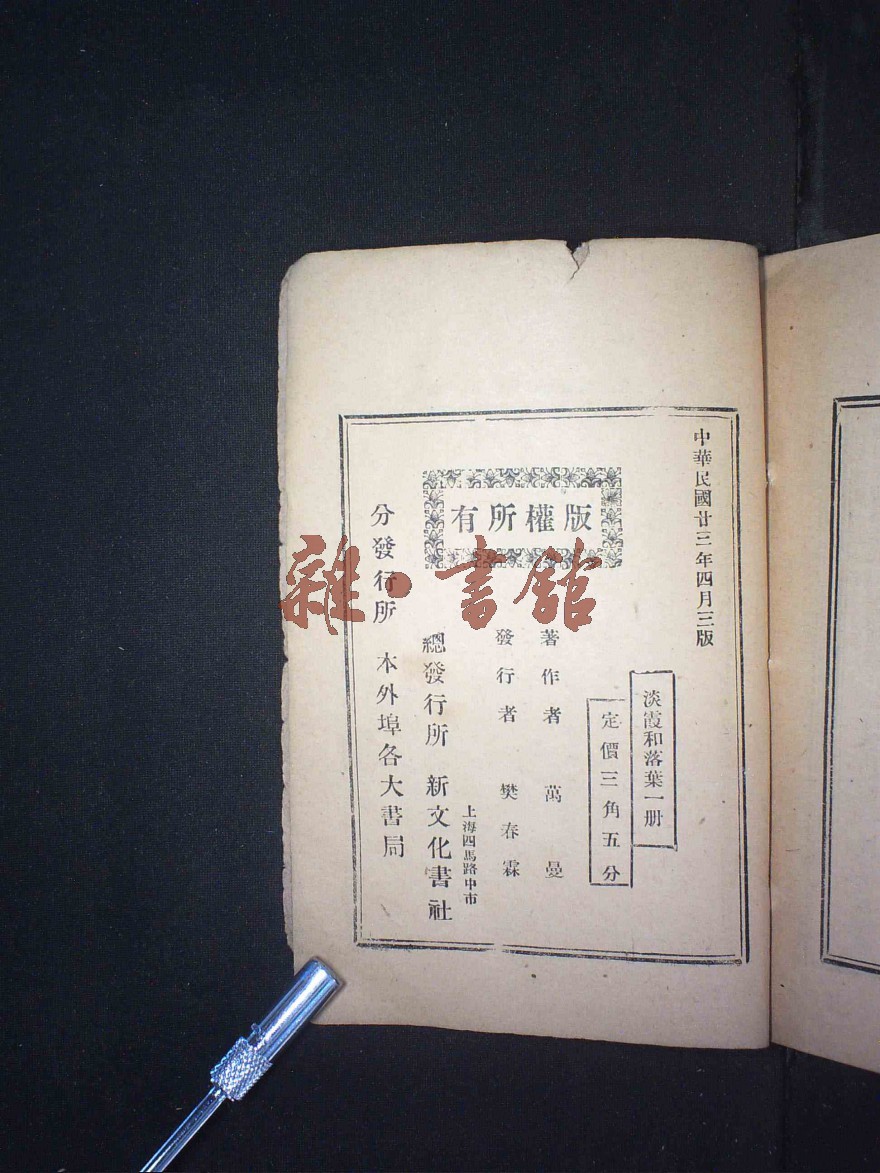 中華民國廿三年四月三版
淡霞和落葉一册
定價三角五分
版權所有
著作者 萬曼
發行者 樊春霖
上海四馬路中市
總發行所 新文化書社
分發行所 本外埠各大書局
雜·書館